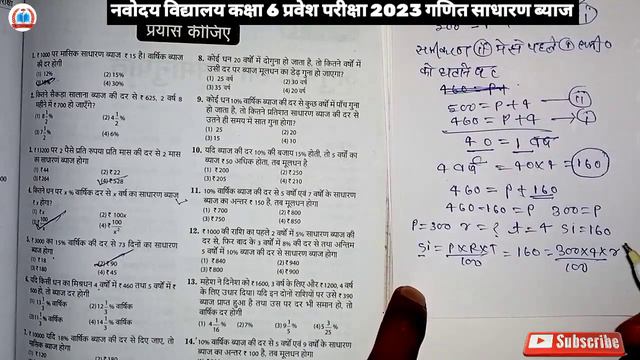 नवोदय विद्यालय कक्षा 6 प्रवेश परीक्षा 2023 गणित साधारण ब्याज
प्रयास कीजिए
1. ₹1000 पर मासिक साधारण ब्याज ₹15 है। वार्षिक ब्याज
की दर होगी
(1) 12% (2) 15%
2. कितने सैकड़ा सालाना ब्याज की दर से ₹625, 2 वर्ष 8
महीने में ₹700 हो जाएँगे?
(1) 8 1/2 % (2) 5 1/2 %
(4) 6%
पर 2 पैसे प्रति रूपया प्रति मास की दर से 2 मास
का साधारण ब्याज होगा
(1) ₹44 (2) ₹22
(3) ₹264 (4) ₹528
4. कितने धन पर x% वार्षिक दर से x वर्ष का साधारण ब्याज
₹x होगा?
(1) ₹x (2) ₹100x
(4) ₹ 100/x²
5. ₹3000 का 15% वार्षिक की दर से 73 दिनों का साधारण
ब्याज होगा
(2) ₹90
(3) ₹180 (4) ₹45
6. यदि किसी धन का मिश्रधन 4 वर्षों में ₹460 तथा 5 वर्षों में ₹
500 हो, तो ब्याज दर होगी
(1) 13 1/3 % वार्षिक (2) 12 1/3 % वार्षिक
(3) 11 1/3 % वार्षिक (4) 14 1/3 % वार्षिक
7. ₹10000 यदि 18% वार्षिक ब्याज की दर से दिए जाए, तो
8. कोई धन 20 वर्षों में दोगुना हो जाता है, तो कितने वर्षों में
उसी दर पर ब्याज मूलधन का डेढ़ गुना हो जाएगा?
(1) 25 वर्ष (2) 30 वर्ष
(3) 35 वर्ष (4) 20 वर्ष
9. कोई धन 10% वार्षिक ब्याज की दर से कुछ वर्षों में पाँच गुना
हो जाता है। कितने प्रतिशत साधारण ब्याज की दर से
उतने ही समय में सात गुना होगा?
(1) 25 (2) 20
(3) 15 (4) 10
10. यदि ब्याज की दर 10% की बजाय 15% होती, तो 5 वर्षों का
ब्याज ₹50 अधिक होता, तब मूलधन है
(1) ₹175 (2) ₹200
(3) ₹205 (4) ₹210
11. 10% वार्षिक ब्याज की दर से 5 वर्षों एवं 7 वर्षों के साधारण
ब्याज का अन्तर ₹150 है, तब मूलधन होगा
(1) ₹700 (2) ₹800
(3) ₹750 (4) ₹850
12. ₹1000 की राशि का पहले 2 वर्षों में 5% साधारण ब्याज की
दर से, फिर बाद के 3 वर्षों में 8% की दर से तथा अन्तिम
5 वर्षों में 10% ब्याज की दर से साधारण ब्याज होगा
(1) ₹840 (2) ₹640
(3) ₹900 (4) ₹800
13. महेश ने दिनेश को ₹1600, 3 वर्ष के लिए और ₹1200, 4 वर्ष
के लिए उधार दिया। यदि इन दोनों राशियों पर उसे ₹390
ब्याज प्राप्त हुआ है तथा उस पर दर भी समान हो, तो
वार्षिक दर होगी
(1) 4 1/16 % (2) 7% (3) 9 1/5 % (4) 5 3/25 %
14. 10% वार्षिक ब्याज की दर से 5 वर्षों एवं 9 वर्षों के साधारण
ब्याज का अन्तर ₹100 है, तब मूलधन होगा
समीकरण (ii) में से पहले
को घटाने पर
500 = P + 4 (ii)
460 = P + 4 (i)
40 = 1 वर्ष
4 वर्ष = 40 × 4 = 160
460 = P + 160
460 - 160 = P 300 = P
P = 300 r = ? t = 4 SI = 160
SI = P×R×T/100 = 160 = 300×4×r/100
Subscribe